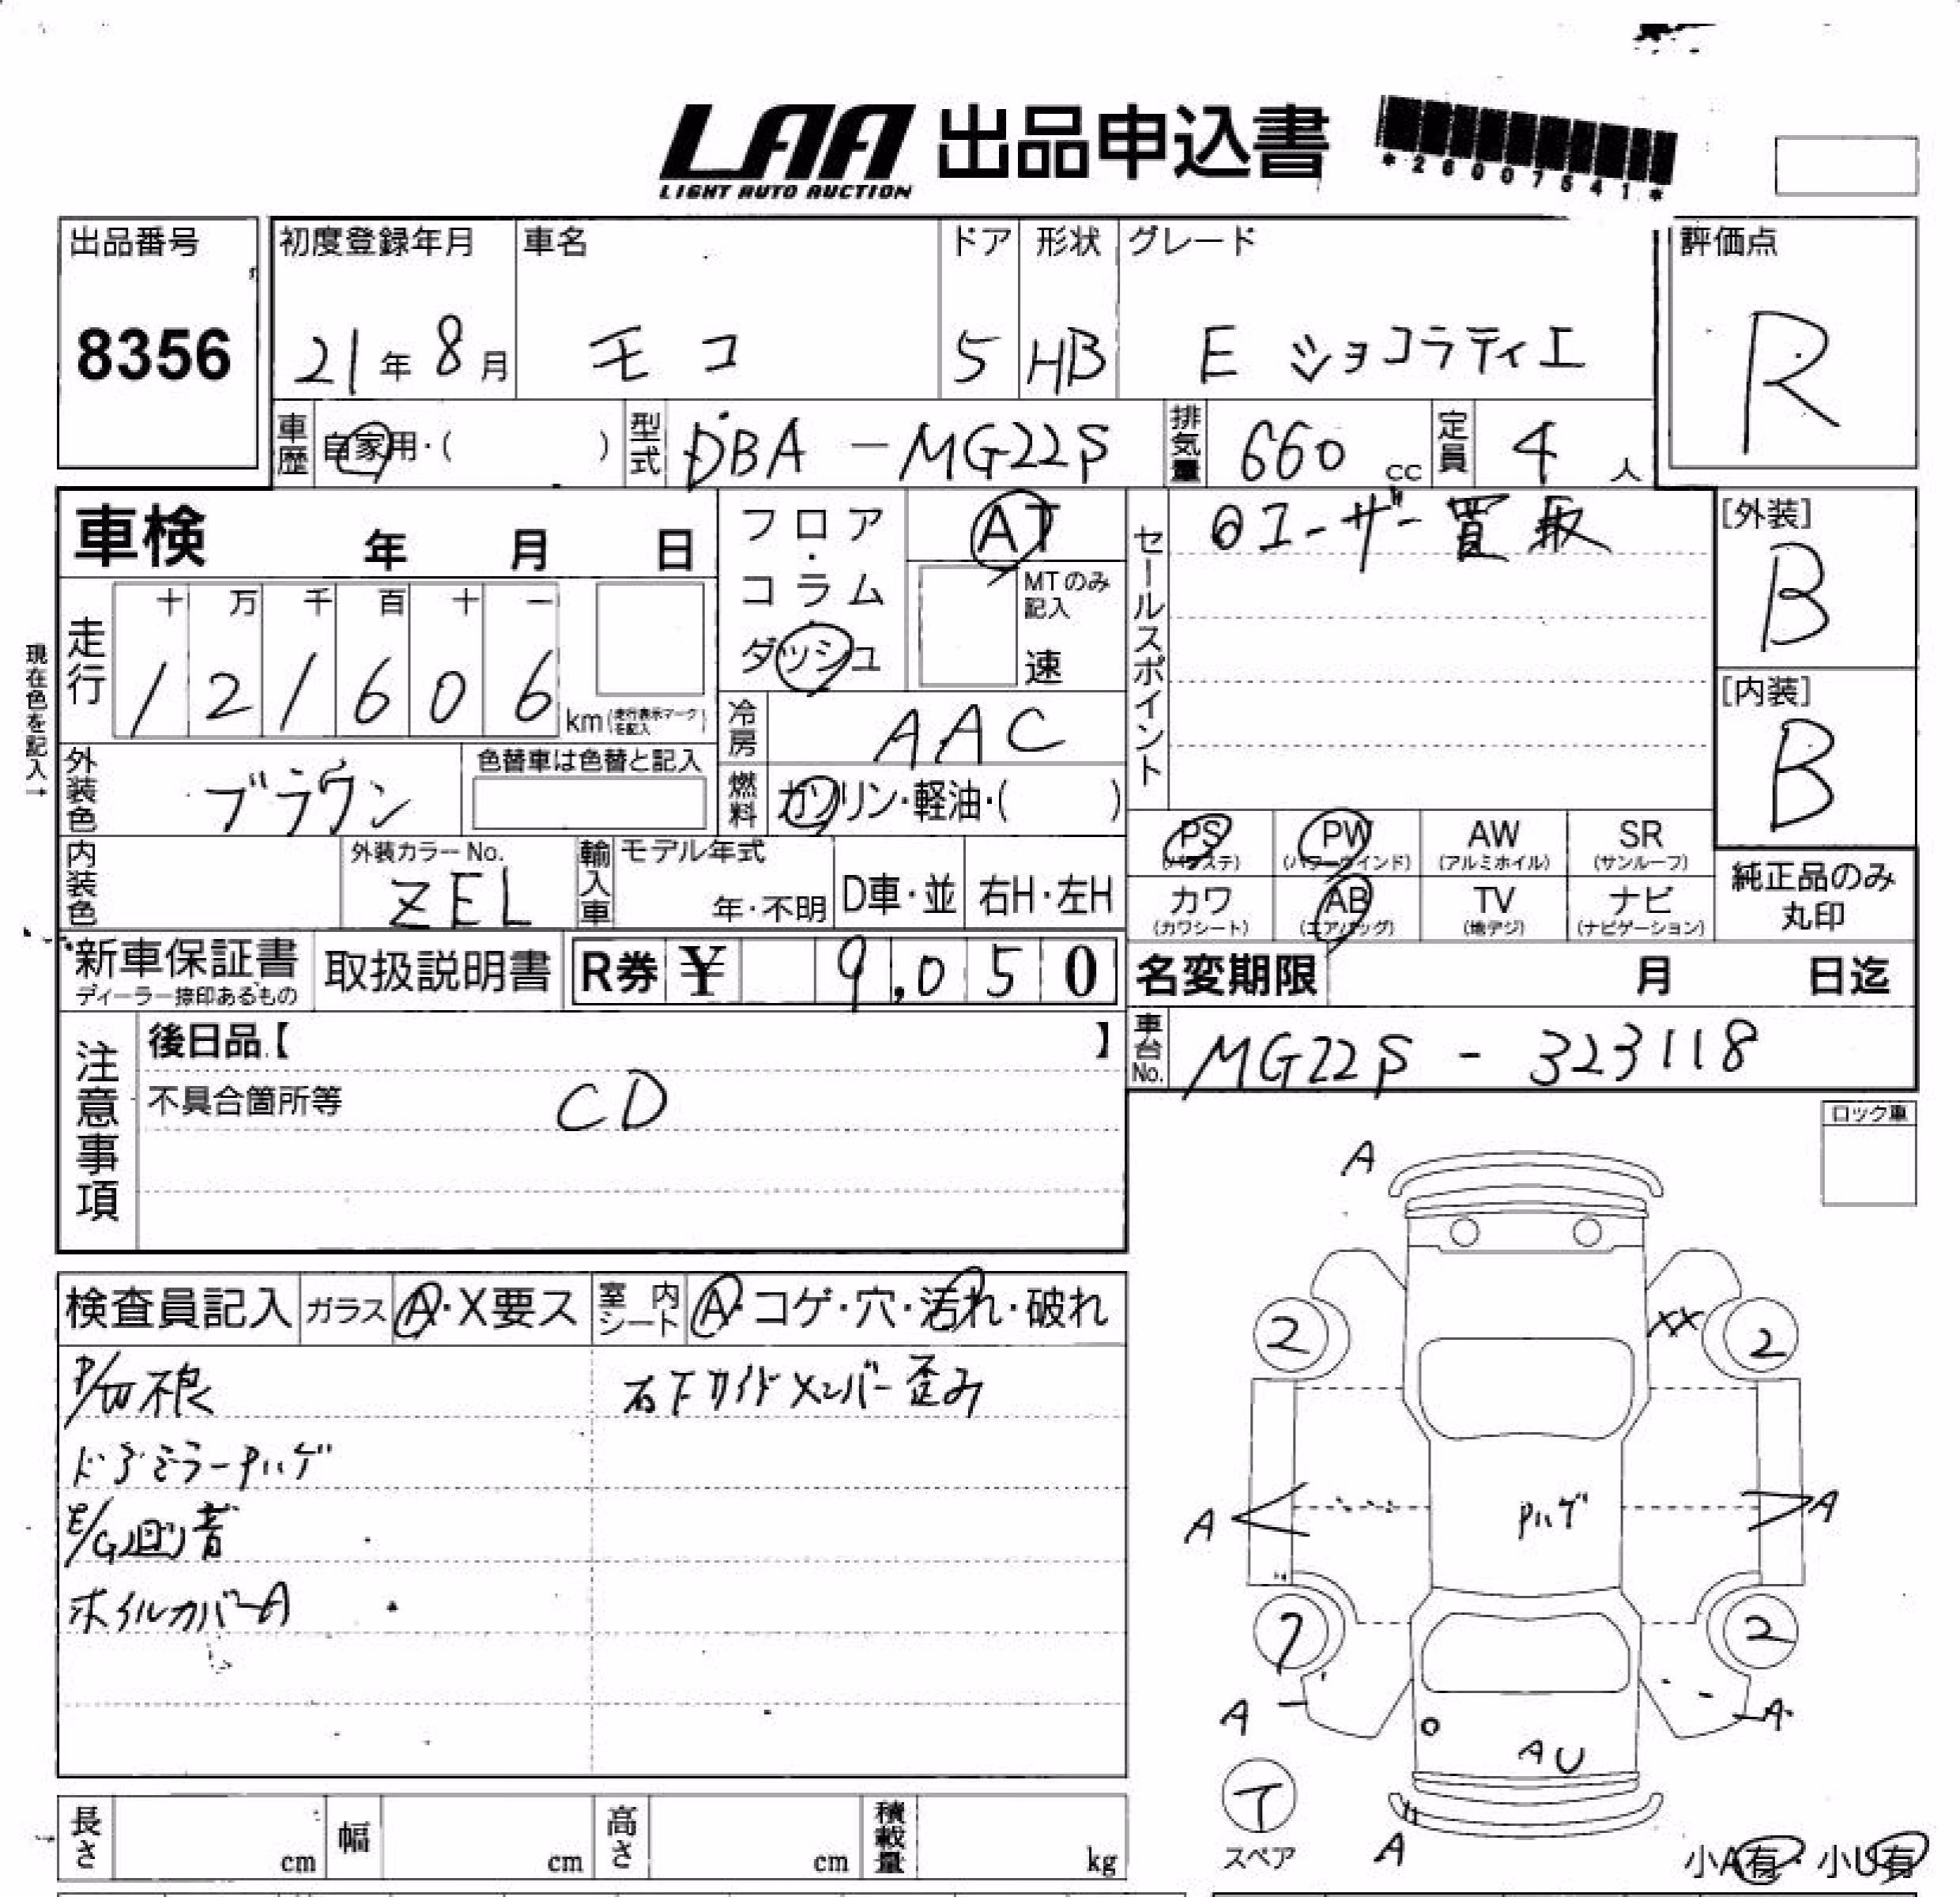 LAA 出品申込書
LIGHT AUTO AUCTION
*26007541*
出品番号 初度登録年月 車名 ドア 形状 グレード 評価点
8356 21年 8月 モコ 5 HB E ショコラティエ R
車歴 自家用・( ) 型式 DBA-MG22S 排気量 660 cc 定員 4 人
車検 年 月 日
フロア・コラム・ダッシュ
AT
MTのみ記入
速
セールスポイント
ユーザー買取
[外装]
B
[内装]
B
現在色を記入→
走行 十 万 千 百 十 一
1 2 1 6 0 6 km (走行表示マークを記入)
冷房 AAC
外装色 ブラウン 色替車は色替と記入
燃料 ガソリン・軽油・( )
内装色 外装カラーNo. ZEL
輸入車 モデル年式 年・不明 D車・並 右H・左H
PS (パワステ) PW (パワーウインド) AW (アルミホイル) SR (サンルーフ)
カワ (カワシート) AB (エアバッグ) TV (地デジ) ナビ (ナビゲーション)
純正品のみ丸印
新車保証書 ディーラー捺印あるもの 取扱説明書 R券 ¥ 9,050
名変期限 月 日迄
車台No. MG22S-323118
注意事項
後日品【 】
不具合箇所等 CD
ロック車
検査員記入 ガラス A・X要ス 室内シート A・コゲ・穴・汚れ・破れ
P/W不良 右下サイドメンバー歪み
ドアミラーPハゲ
E/G廻り音
ホイルカバーA
A
2 XX 2
A Pハゲ A
7 2
A A
AU
テ
スペア
A
小A有・小U有
長さ cm 幅 cm 高さ cm 積載量 kg